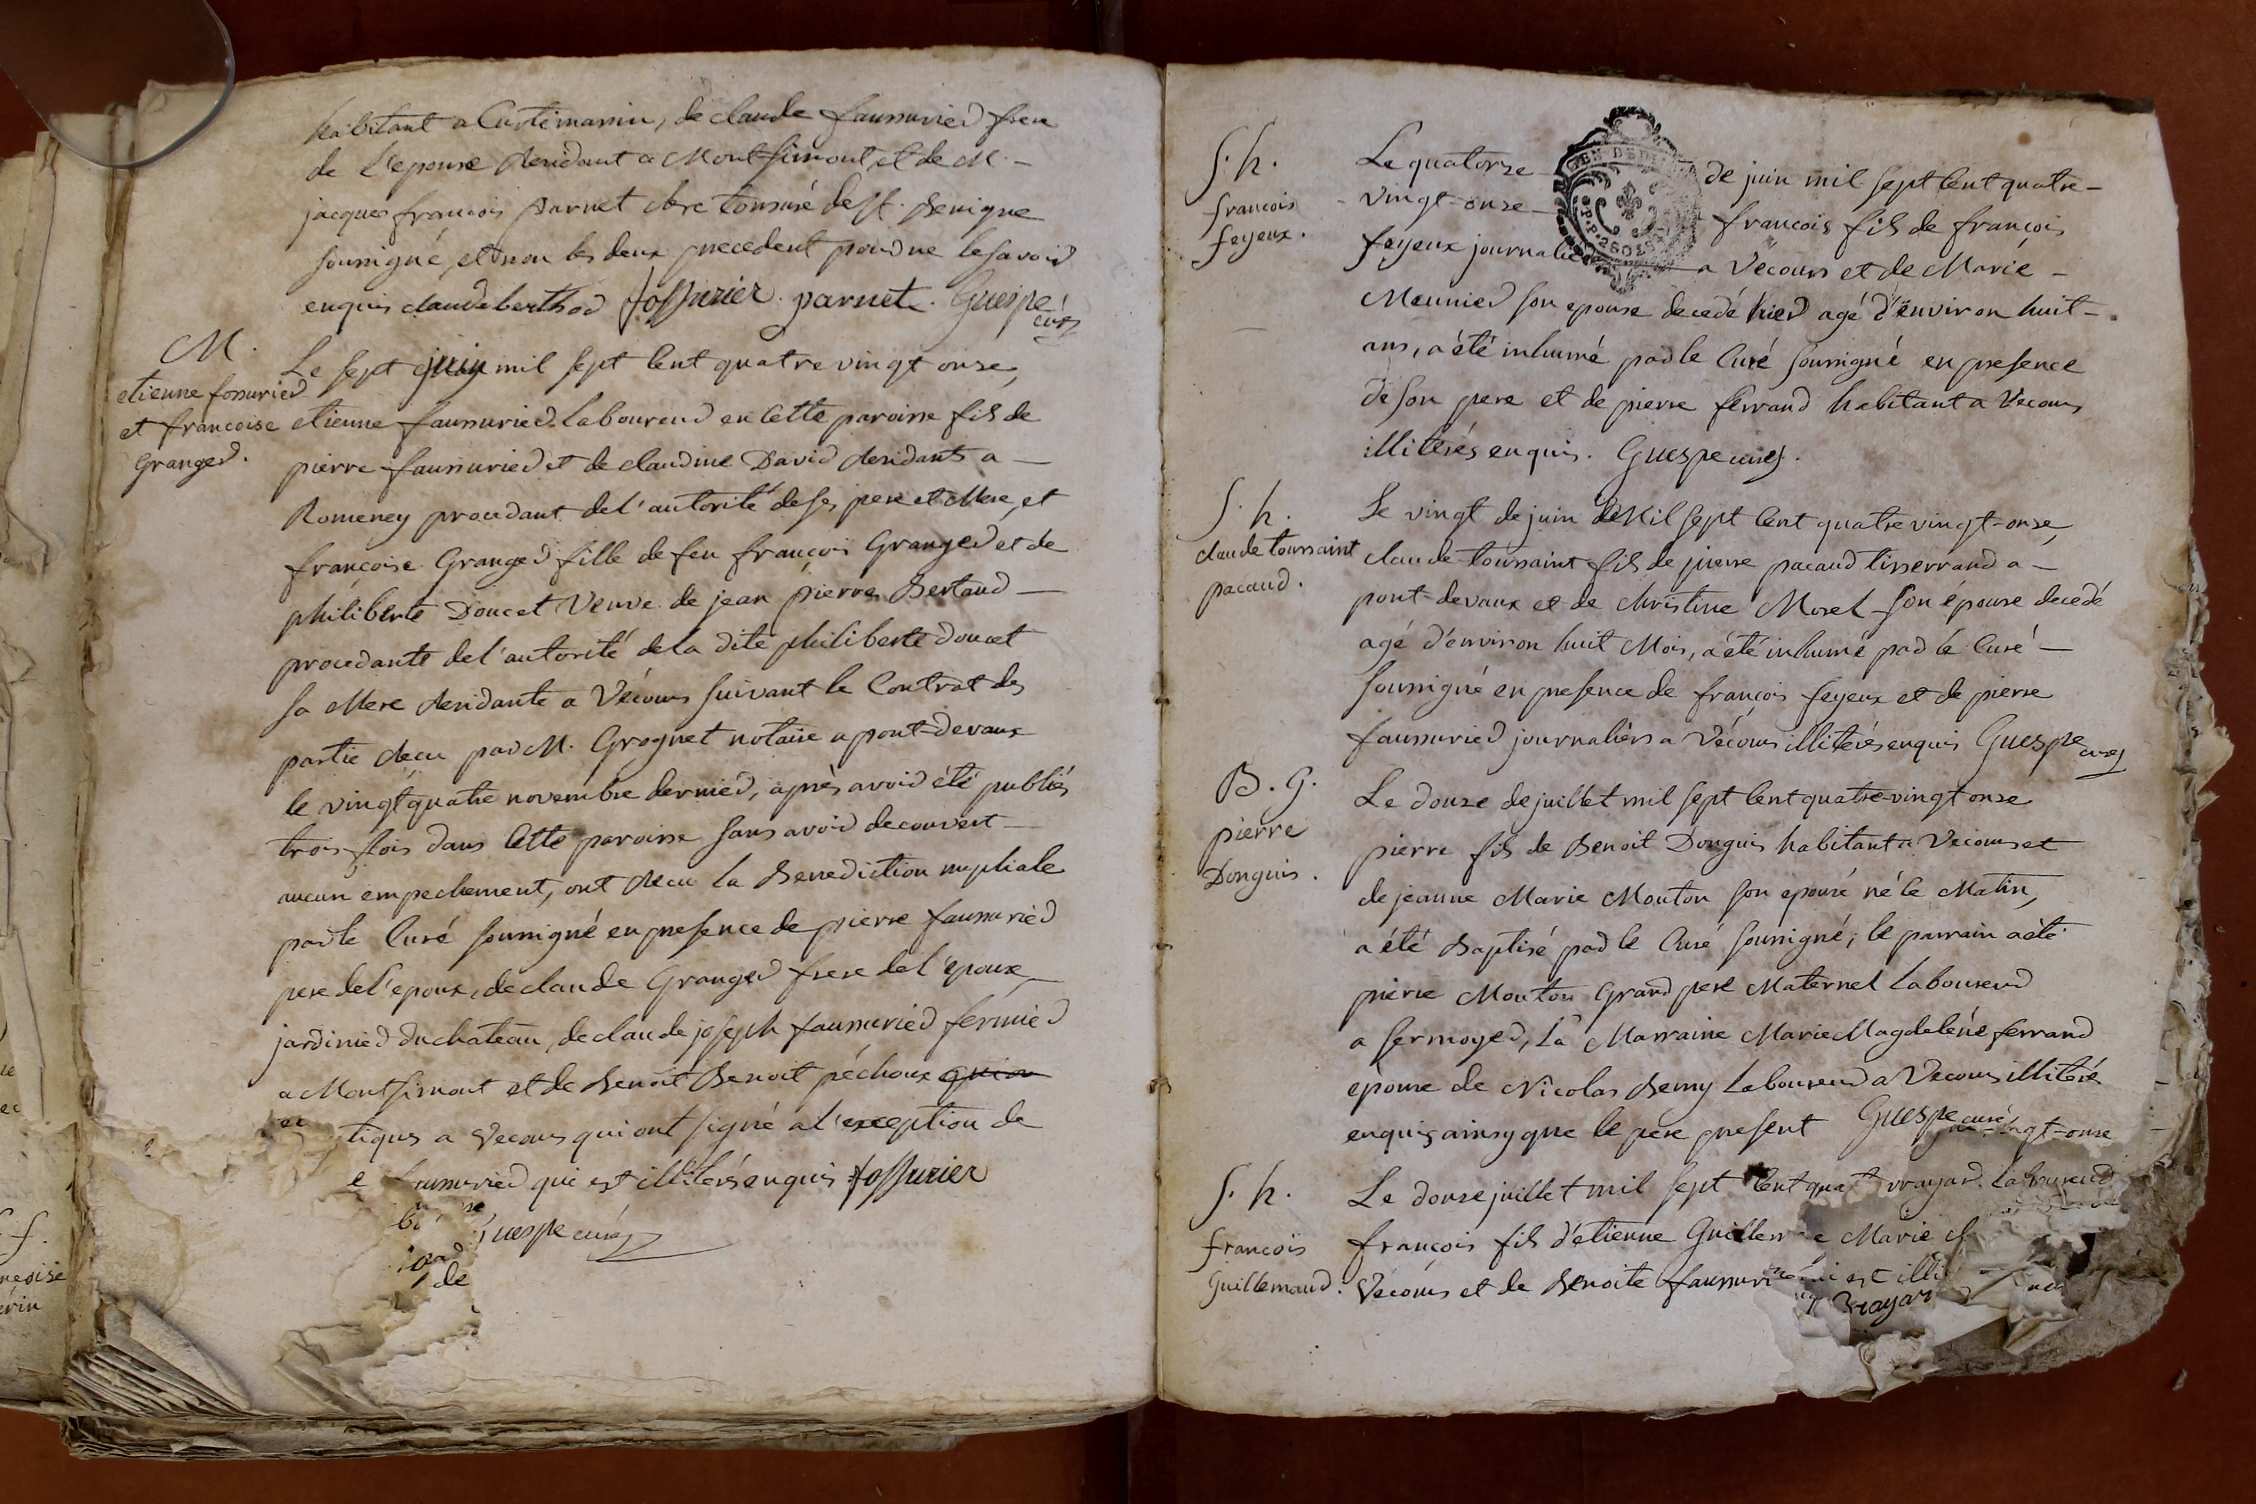 habitant a Curtimarin, de claude faussurier frere
de l'epouse residant a Montsimont et de M. -
jacques françois parnet clerc tonsuré de st. Benigne
soussigné, et non les deux precedent pour ne le savoir
enquis claude berthod fossurier. parnet. Guespe
curé
M.
etienne fossurier
et francoise
Granger.
Le sept juin mil sept Cent quatre vingt onze,
etienne faussurier Laboureur en Cette paroisse fils de
pierre faussurier et de claudine David residants a -
Romeney procedant de l'autorité de ses pere et Mere, et
françoise Granger fille de feu françois Granger et de
philiberte Doucet veuve de jean pierre Bertaud -
procedante de l'autorité de la dite philiberte doucet
sa Mere residante a Vécours suivant le Contrat des
partie recu par M. Grognet notaire a pont-devaux
le vingt quatre novembre dernier, après avoir été publiés
trois fois dans Cette paroisse sans avoir decouvert -
aucun empechement, ont recu la Benediction nuptiale
par le Curé soussigné en presence de pierre faussurier
pere de l'epoux, de claude Granger frere de l'epouse,
jardinier du chateau, de claude joseph faussurier fermier
a Montsimont et de Benoît Benoit péchoux
tiques a Vecours qui ont signé a l'exception de
faussurier qui est illiterés enquis fossurier
Guespe curé
de
S. h.
francois
feyeux.
Le quatorze de juin mil sept Cent quatre -
vingt-onze - francois fils de françois
feyeux journalier a Vécours et de Marie -
Meunier son epouse decedé hier agé d'environ huit -
ans, a été inhumé par le Curé soussigné en presence
de son pere et de pierre ferrand habitant a Vecours
illiterés enquis. Guespe curé.
S. h.
claude toussaint
pacaud.
Le vingt de juin Mil sept Cent quatre vingt-onze,
claude-toussaint fils de pierre pacaud tisserrand a -
pont-devaux et de christine Morel son épouse decedé
agé d'environ huit Mois, a été inhumé par le Curé -
soussigné en presence de françois feyeux et de pierre
faussurier journaliers a Vécours illiterés enquis Guespe curé
B. G.
pierre
Donguis.
Le douze de juillet mil sept Cent quatre-vingt onze
pierre fils de Benoit Donguis habitant a Vecours et
de jeanne Marie Mouton son epouse né le Matin,
a été Baptisé par le Curé soussigné; le parrain a été
pierre Mouton Grand pere Maternel Laboureur
a sermoyer, La Marraine Marie Magdeleine ferrand
epouse de Nicolas Remy Laboureur a Vecours illiteré
enquis ainsy que le père present Guespe curé
ngt-onze
S. h.
francois
Guillemaud.
Le douze juillet mil sept Cent quat
vrayar. Laboureur
françois fils d'etienne Guillem
Marie
Vecours et de Benoite faussuri
est illi
vrayar